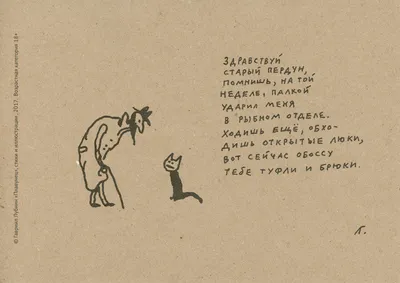 Здравствуй
старый пердун,
помнишь, на той
неделе, палкой
ударил меня
в рыбном отделе.
Ходишь ещё, обхо-
дишь открытые люки,
вот сейчас обоссу
тебе туфли и брюки.
Л.
© Гавриил Лубнин «Поверин», стихи и иллюстрации, 2017. Возрастная категория 18+